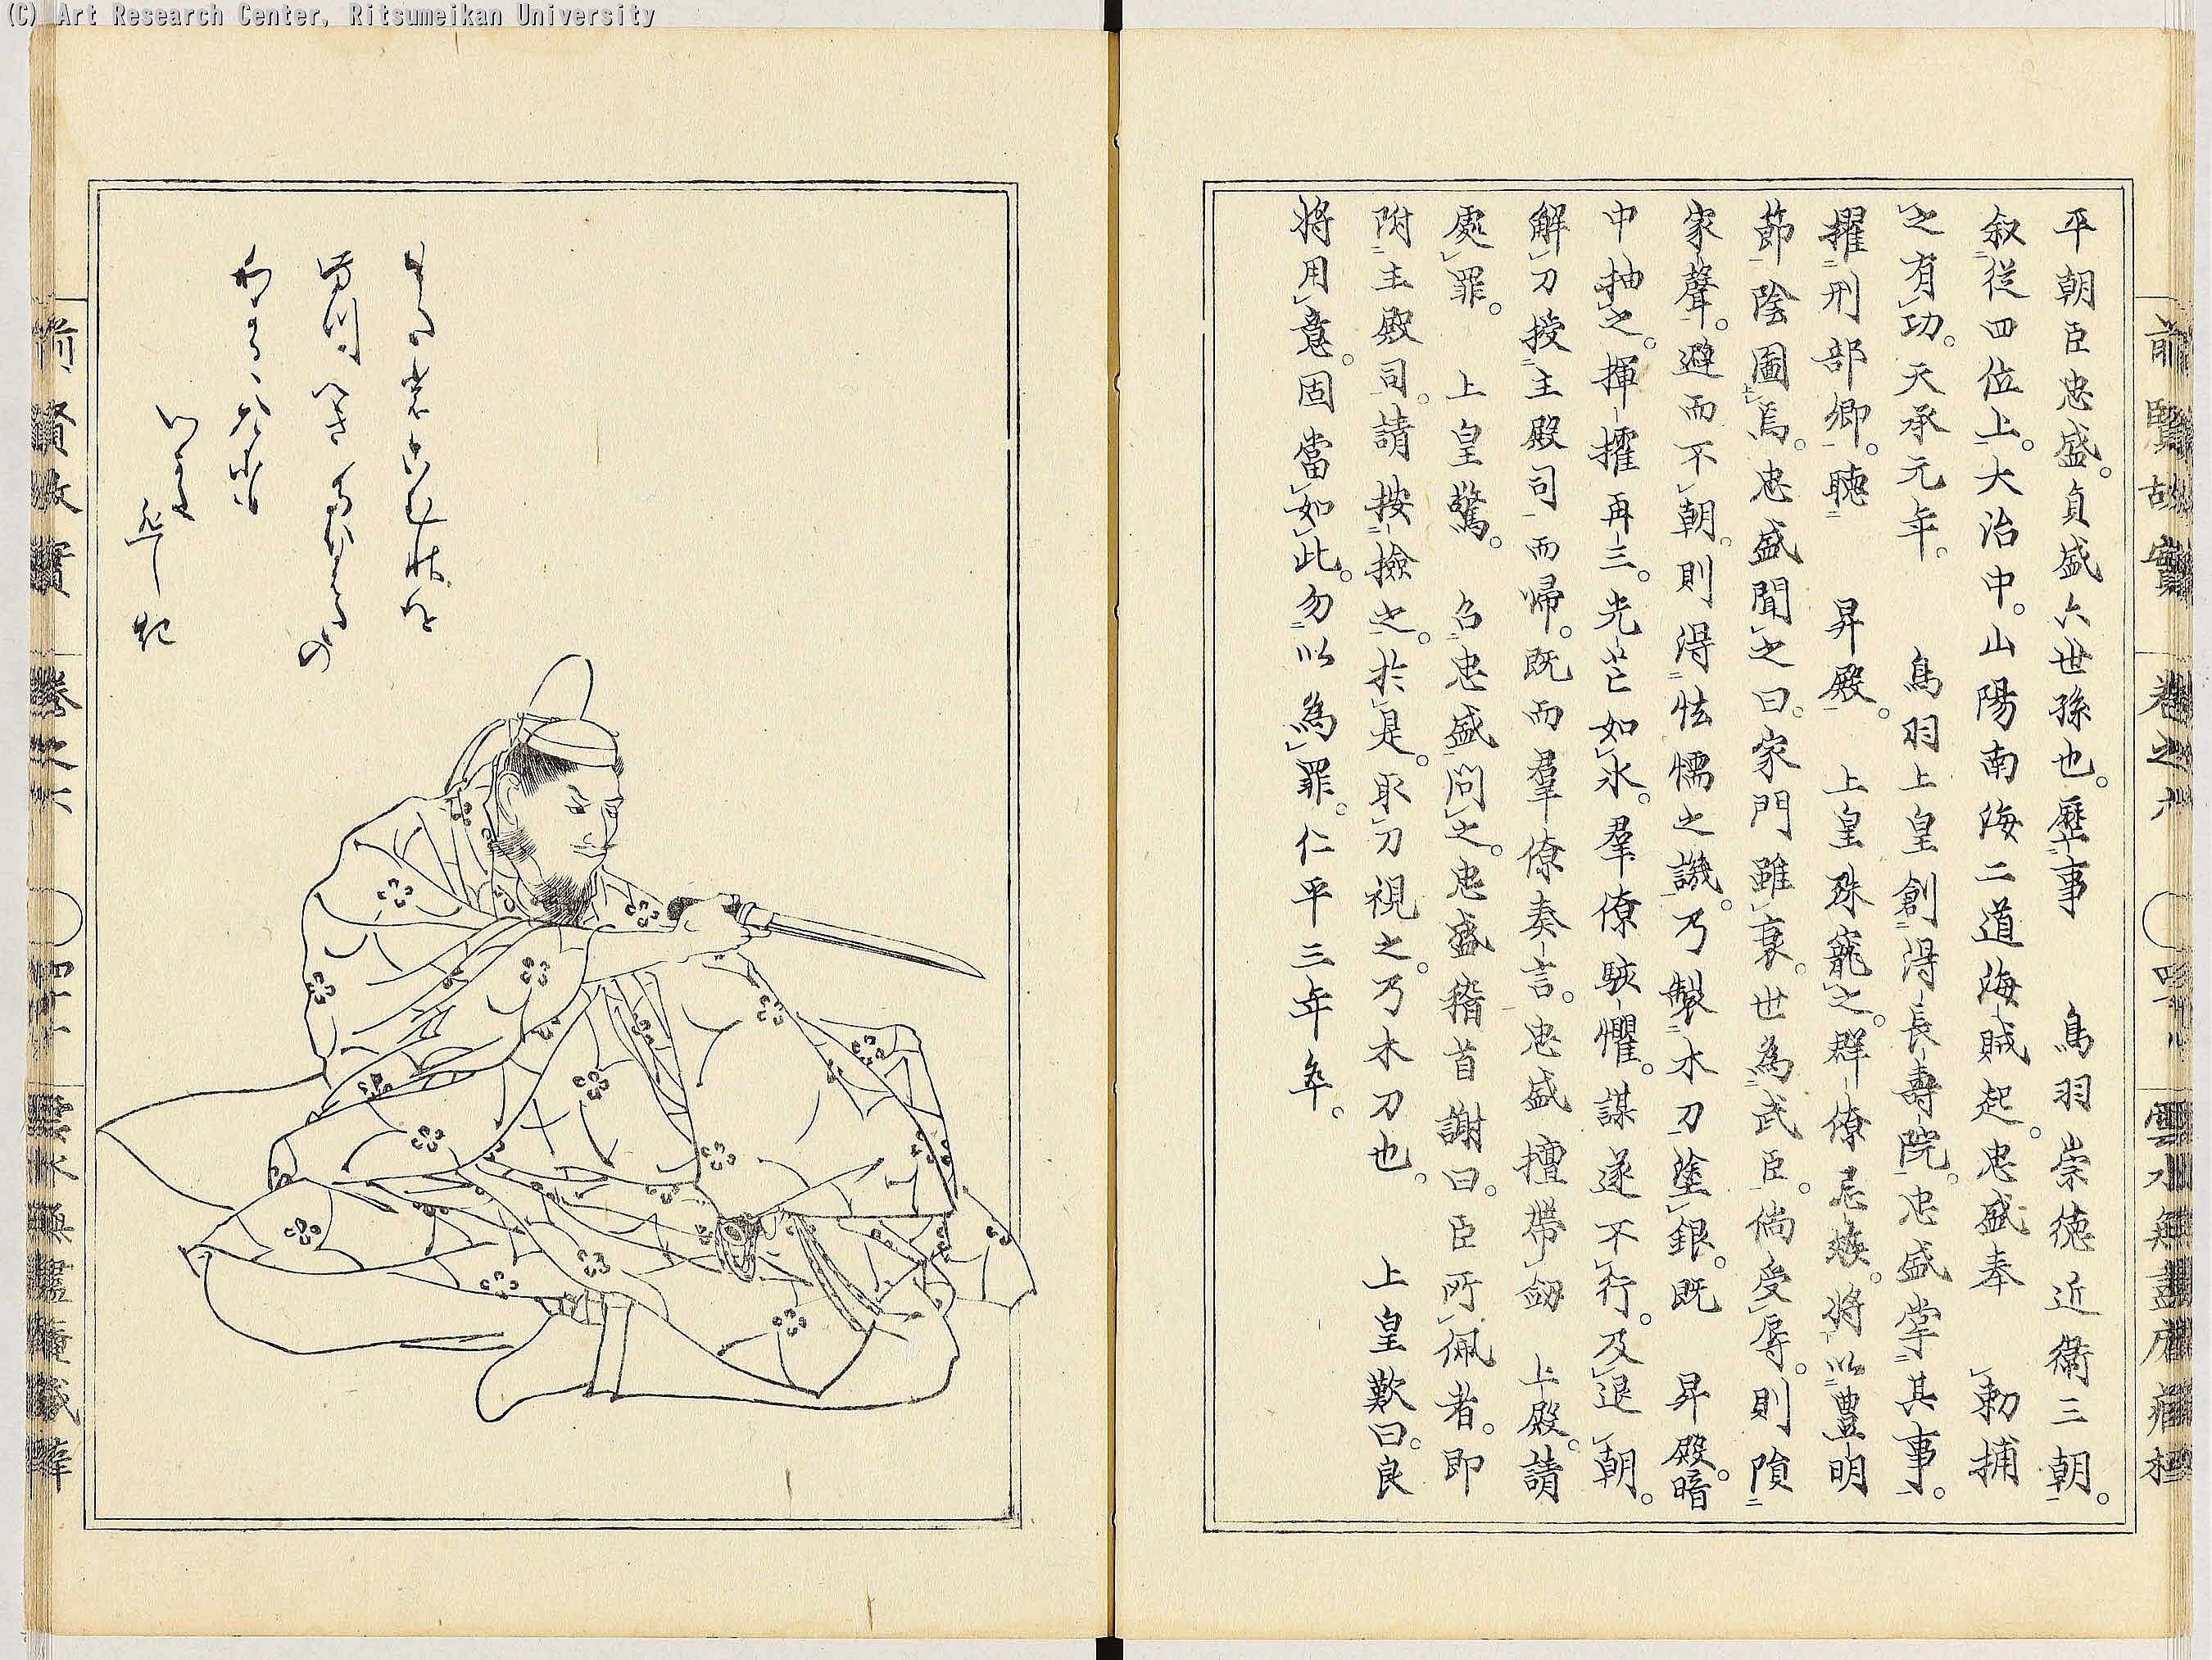 (C) Art Research Center, Ritsumeikan University
平朝臣忠盛。貞盛六世孫也。歷事　鳥羽崇徳近衛三朝。
叙從四位上。大治中。山陽南海二道海賊起。忠盛奉　勅捕
之有功。天承元年。　鳥羽上皇創得長壽院。忠盛掌其事。
擢刑部卿。聽　昇殿。　上皇殊寵之。群僚忌嫉。將以豊明
節陰圖焉。忠盛聞之曰。家門雖衰。世為武臣。倘受辱。則隕
家聲。避而不朝。則得怯懦之譏。乃製木刀塗銀。既　昇殿。暗
中抽之。揮擢再三。光芒如氷。羣僚駭懼。謀遂不行。及退朝。
解刀授主殿司而帰。既而羣僚奏言。忠盛擅帶劒　上殿。請
處罪。　上皇驚。　召忠盛問之。忠盛稽首謝曰。臣所佩者。即
附主殿司。請按撿之。於是。取刀視之。乃木刀也。　上皇歎曰。良
將用意。固當如此。勿以為罪。仁平三年卒。
前賢故實　卷之六
前賢故實　卷之六